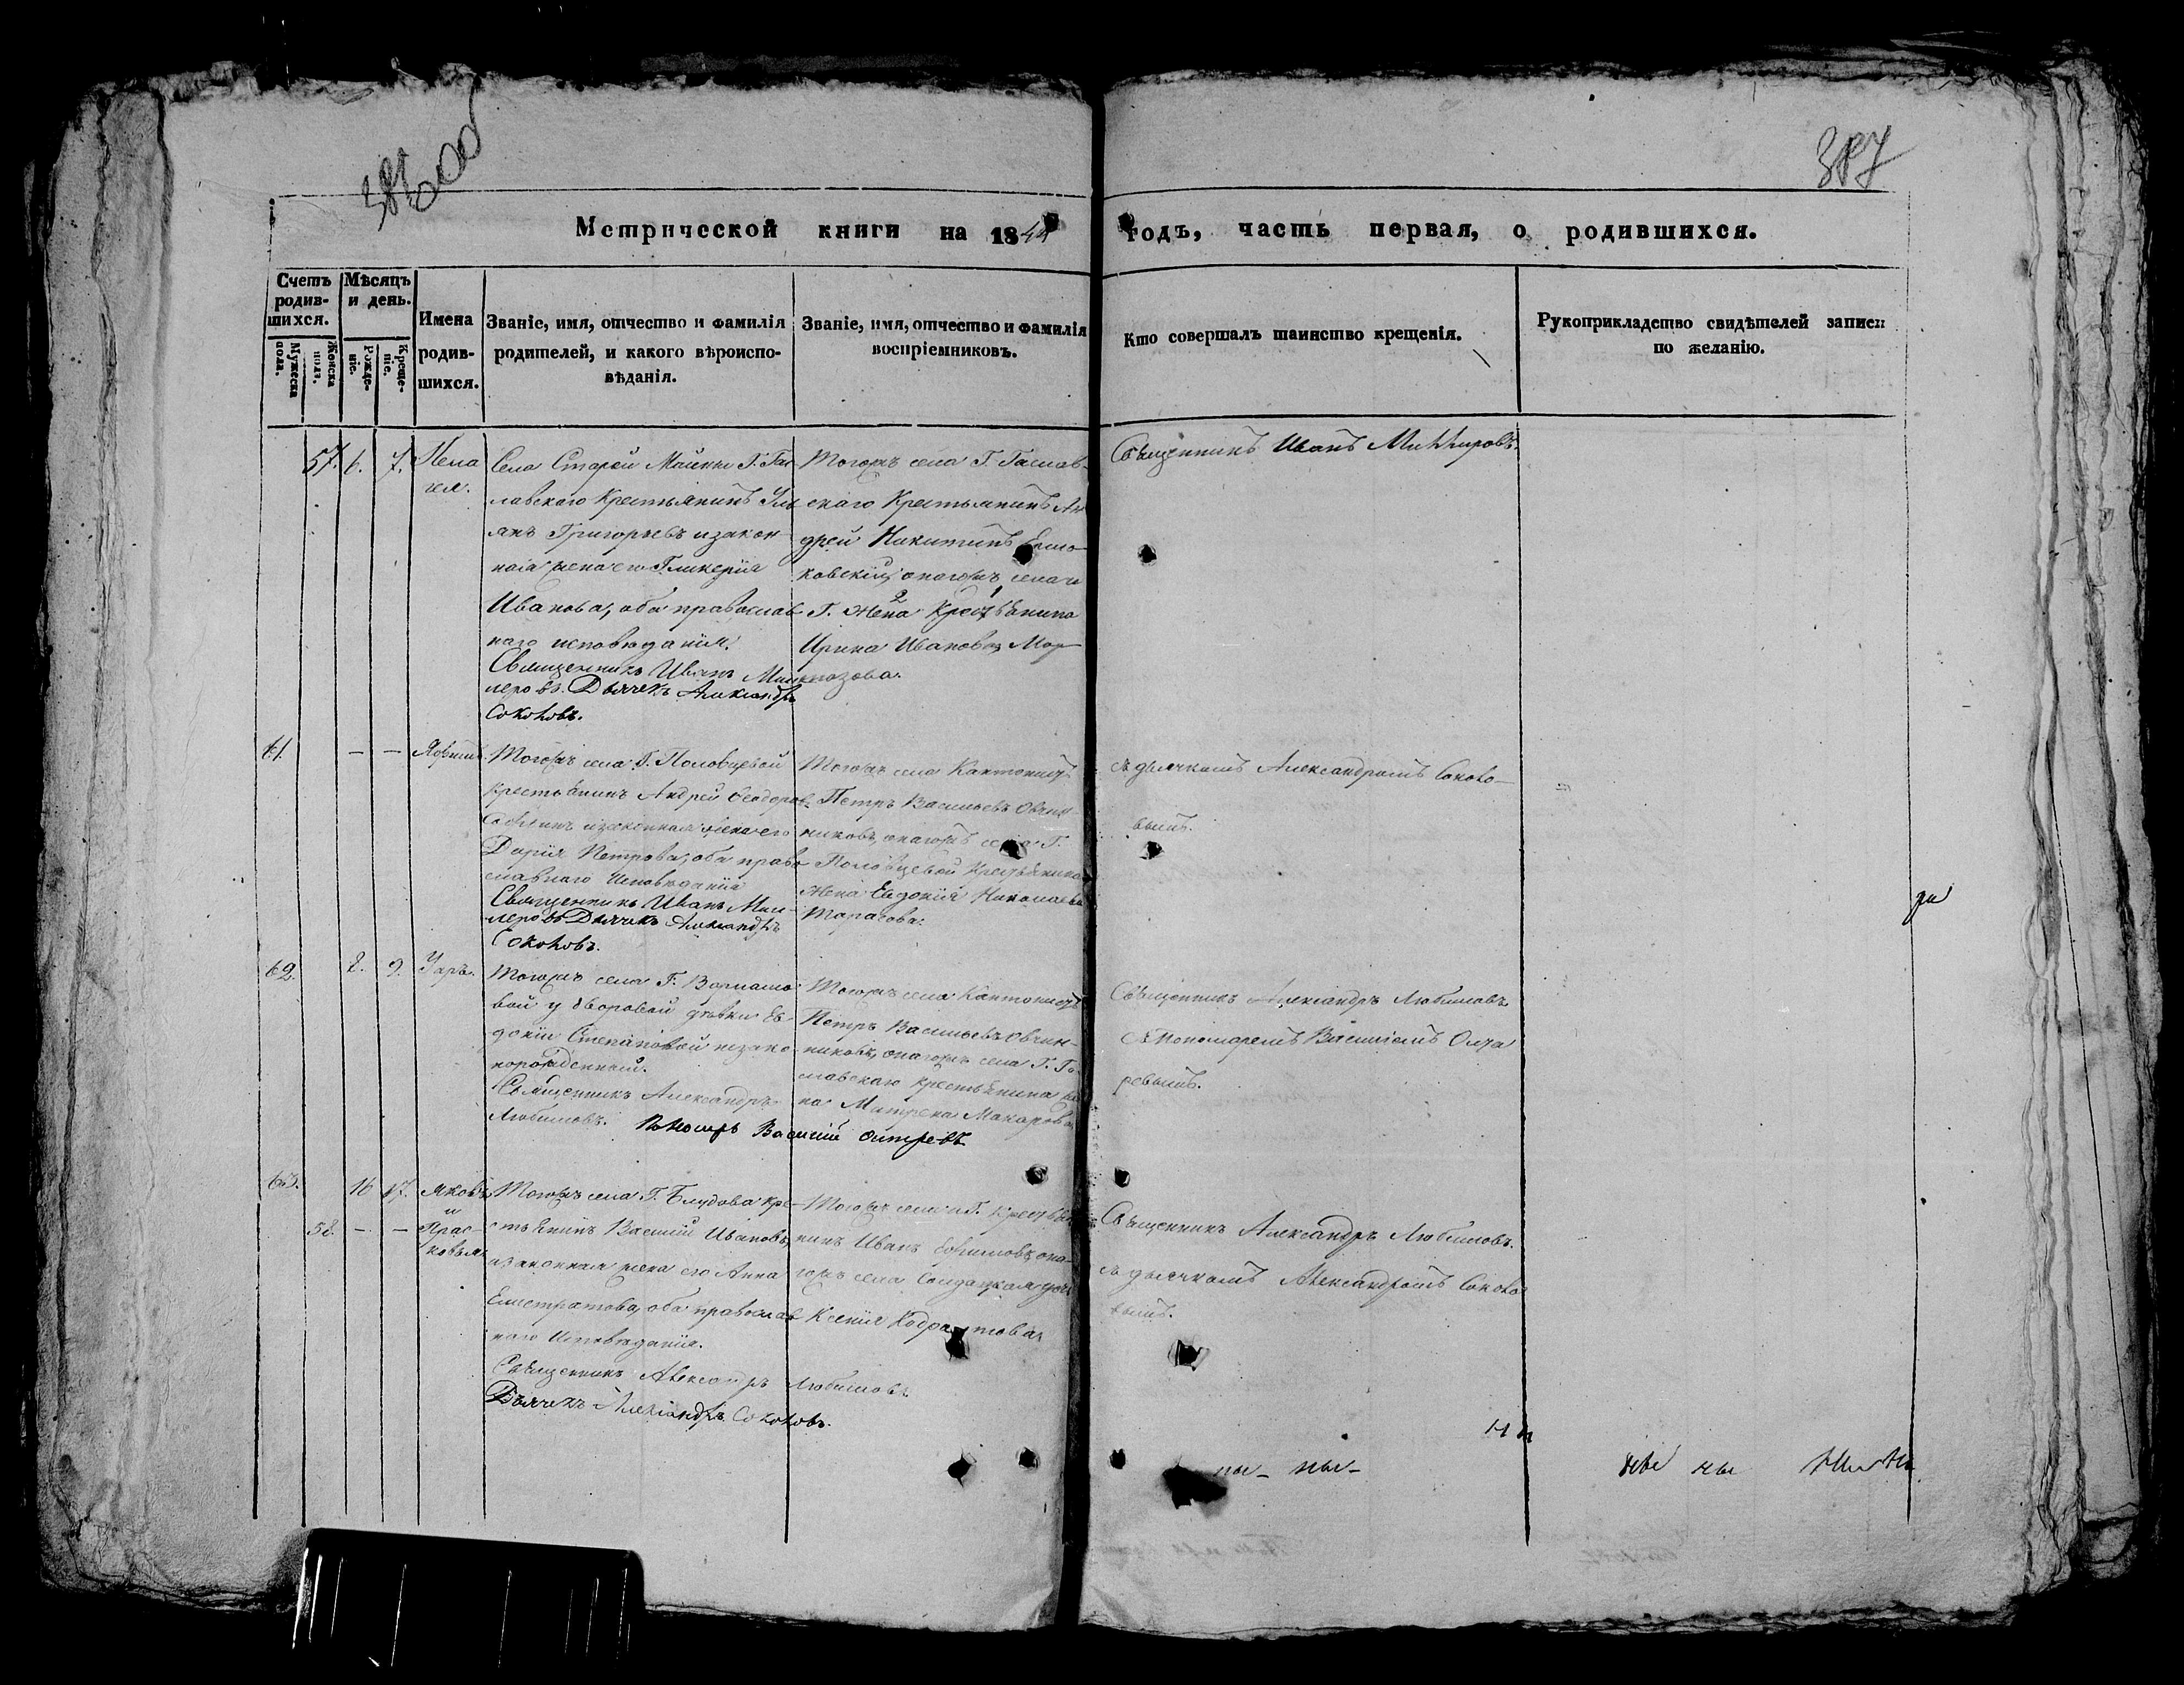 387
Метрической книги на 1844 годъ, часть первая, о родившихся.
Счетъ родив-шихся.
Мужеска пола.
Женска пола.
Мѣсяцъ и день.
Рожде-нiе.
Креще-нiе.
Имена родив-шихся.
Званiе, имя, отчество и фамилiя родителей, и какого вѣроиспо-вѣданiя.
Званiе, имя, отчество и фамилiя воспрiемниковъ.
Кто совершалъ таинство крещенiя.
Рукоприкладство свидѣтелей записи по желанiю.
57. 6. 7. Пела
гея.
Села Старой Майны Г.
лавскаго Крестьянинъ
Григорьевъ изакон
ная жена его Гликерiя
Иванова, оба православ
наго исповѣданiя.
Священникъ Иванъ Мил
леровъ. Дьячекъ Александръ
Соколовъ.
Тогожъ села Г. Гаслав
скаго Крестьянинъ Ан
дрей Никитинъ
ковскiй, онагожъ села и
Г. жена Крестьянина
Ирина Иванова Мор
озова.
Священникъ Иванъ Миллеровъ.
61. — —
Тогожъ села Г. Половцевой
Крестьянинъ Андрей Ѳеодоров
изаконная жена его
Дарiя Петрова, оба право
славнаго Исповѣданiя
Священникъ Иванъ Мил
леровъ Дьячекъ Александръ
Соколовъ.
Тогожъ села Кантонистъ
Петръ Васильевъ Овчин
никовъ, онагожъ села Г.
Половцевой Крестьянина
жена Евдокiя Николаева
Тарасова.
съ дьячкомъ Александромъ Соколо
вымъ.
да
62. 8. 9. Уаръ.
Тогожъ села Г.
вой у дворовой дѣвки Ев
докiи Степановой незако
норожденный.
Священникъ Александръ
Любимовъ. Пономарь Василiй
Тогожъ села Кантонистъ
Петръ Васильевъ Овчин
никовъ, онагожъ села Г. Га
славскаго крестьянина же
на Матрена Макарова
Священникъ Александръ Любимовъ
съ Пономаремъ Василiемъ
ревымъ.
63. 16 17. Яковъ
и
58. — — Прас
ковья.
Тогожъ села Г. Блудова кре
стьянинъ Василiй Ивановъ,
изаконная жена его Анна
Елистратова, оба православ
наго Исповѣданiя.
Священникъ Александръ Любимовъ
Дьячекъ Александръ Соколовъ.
Тогожъ села иГ. Крестья
нинъ Иванъ Ефимовъ, она
гожъ села Солдатская дочь
Ксенiя Кодратова
Священникъ Александръ Любимовъ.
съ дьячкомъ Александромъ Соколо
вымъ.